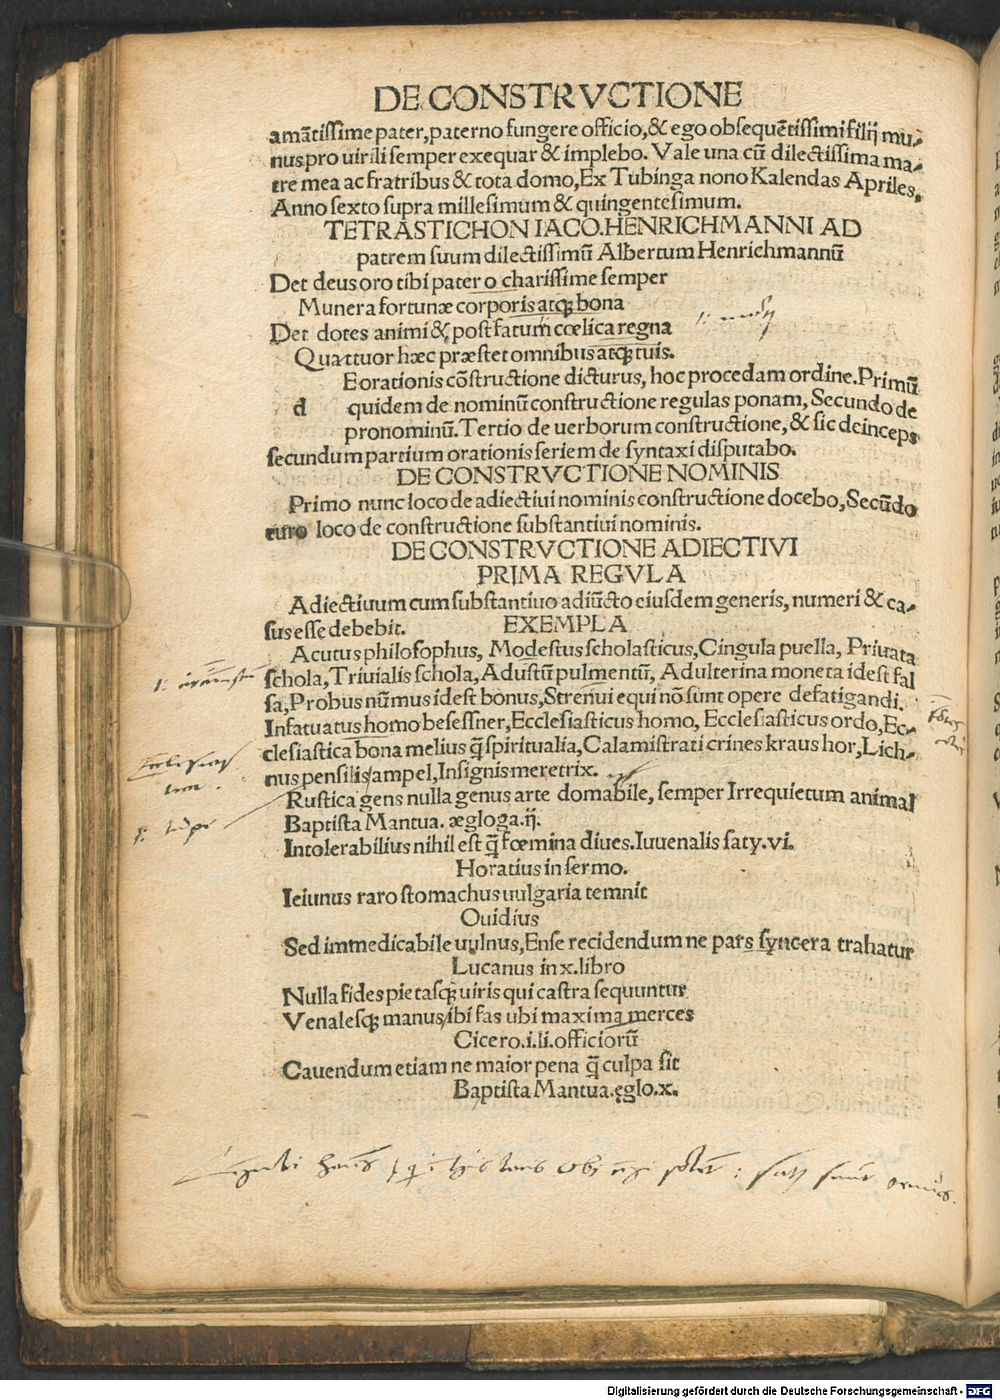 DE CONSTRVCTIONE
amãtissime pater, paterno fungere officio, & ego obsequẽtissimi filij mu⸗
nus pro uirili semper exequar & implebo. Vale una cũ dilectissima ma⸗
tre mea ac fratribus & tota domo, Ex Tubinga nono Kalendas Apriles,
Anno sexto supra millesimum & quingentesimum.
TETRASTICHON IACO. HENRICHMANNI AD
patrem suum dilectissimũ Albertum Henrichmannũ
Det deus oro tibi pater o charissime semper
Munera fortunæ corporis atqꝫ bona
Det dotes animi & post fatum cœlica regna
Quattuor hæc præstet omnibus atqꝫ tuis.
E orationis cõstructione dicturus, hoc procedam ordine. Primũ
d quidem de nominũ constructione regulas ponam, Secundo de
pronominũ. Tertio de uerborum constructione, & sic deinceps
secundum partium orationis seriem de syntaxi disputabo.
DE CONSTRVCTIONE NOMINIS
Primo nunc loco de adiectiui nominis constructione docebo, Secũdo
turo loco de constructione substantiui nominis.
DE CONSTRVCTIONE ADIECTIVI
PRIMA REGVLA
Adiectiuum cum substantiuo adiũcto eiusdem generis, numeri & ca⸗
sus esse debebit. EXEMPLA
Acutus philosophus, Modestus scholasticus, Cingula puella, Priuata
schola, Triuialis schola, Adustũ pulmentũ, Adulterina moneta idest fal
sa, Probus nũmus idest bonus, Strenui equi nõ sunt opere defatigandi.
Infatuatus homo besessner, Ecclesiasticus homo, Ecclesiasticus ordo, Ec⸗
clesiastica bona melius q̃ spiritualia, Calamistrati crines kraus hor, Lich⸗
nus pensilis ampel, Insignis meretrix.
Rustica gens nulla genus arte domabile, semper Irrequietum animal
Baptista Mantua. ægloga. ij.
Intolerabilius nihil est q̃ fœmina diues. Iuuenalis saty. vi.
Horatius in sermo.
Ieiunus raro stomachus uulgaria temnit
Ouidius
Sed immedicabile uulnus, Ense recidendum ne pars syncera trahatur
Lucanus in x. libro
Nulla fides pietasqꝫ uiris qui castra sequuntur
Venalesqꝫ manus, ibi fas ubi maxima merces
Cicero. i. li. officiorũ
Cauendum etiam ne maior pena q̃ culpa sit
Baptista Mantua. ęglo. x.
Digitalisierung gefördert durch die Deutsche Forschungsgemeinschaft - DFG